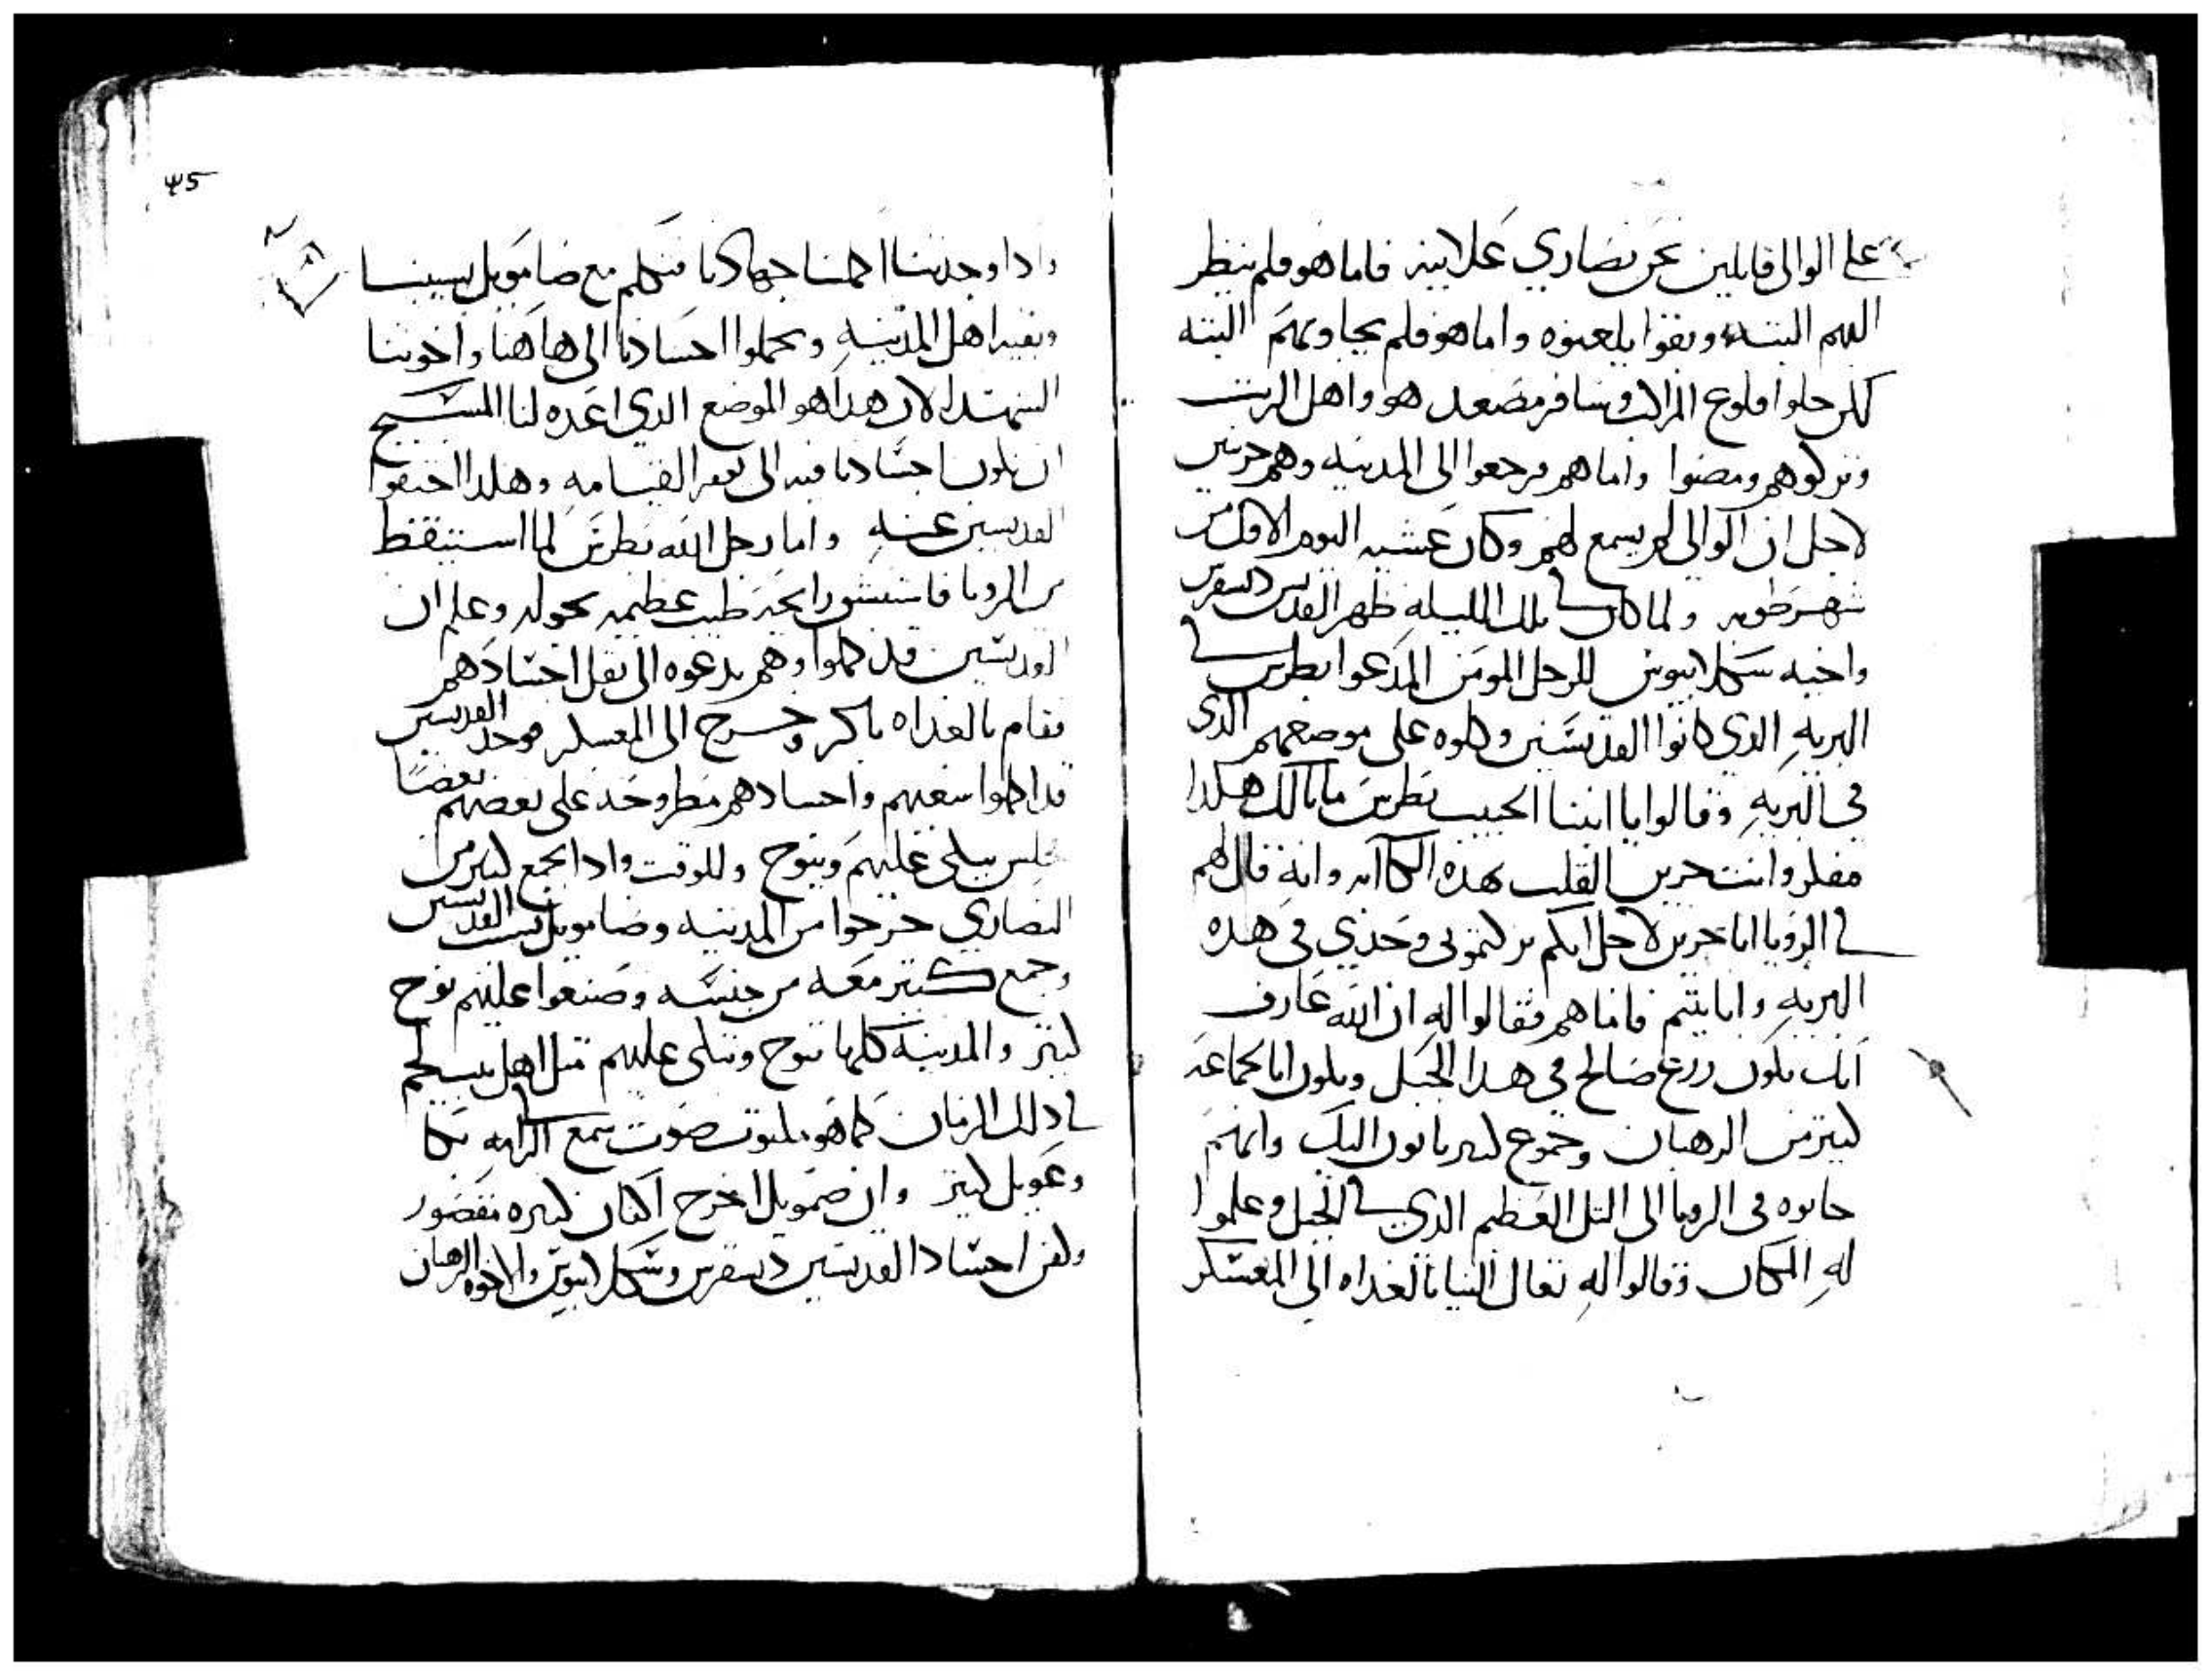 على الوالى قايلين نحن نصارى علانيه فاما هو فلم ينظر
اليهم البته وبقوا يلعنوه واما هو فلم يجاوبهم البته
لكن حلوا قلوع المراكب وسافر مصعد هو واهل الريت
وتركوهم ومضوا واما هم فرجعوا الى المدينه وهم حزينين
لاجل ان الوالى لم يسمع لهم وكان عشيه اليوم الاول من
شهر طوبه ولما كان تلك الليله ظهر القديس ديسقرس
واخيه سكلابيوس للرجل المومن المدعوا بطرس
البريه الدي كانوا القديسين وكلوه على موضعهم الدى
في البريه وقالوا يا ابينا الحبيب بطرس ما بالك هكدا
مفكر وانت حزين القلب بهده الكآبه وانه قال لهم
في الرويا انا حزين لاجل انكم تركتمونى وحدي في هده
البريه وانا يتيم فاما هم فقالوا له ان الله عارف
انك تكون زرع صالح في هدا الجبل ويكون ابا لجماعه
كتير من الرهبان وجموع كتير ياتون اليك وانهم
جابوه في الرويا الى التل العظيم الدي في الجبل وعلموا
له المكان وقالوا له تعال الينا بالغداه الى المعسكر
٣٥
وادا وجدتنا اكملنا جهادنا فتكلم مع ضامويل نسيبنا
وبقيه اهل المدينه ويحملوا اجسادنا الى هاهنا واخوتنا
الشهدا لان هدا هو الموضع الدي اعده لنا المسيح
ان تكون اجسادنا فيه الى يوم القيامه وهكدا اختفوا
القديسين عنه واما رجل الله بطرس لما استيقظ
من الرويا فاستنشق رايحه طيب عظيمه بحوله وعلم ان
القديسين قد كملوا وهم يدعوه الى نقل اجسادهم
فقام بالغداه باكر وخرج الى المعسكر فوجد القديسين
قد اكملوا سعيهم واجسادهم مطروحه على بعضهم بعضا
فجلس يبكى عليهم وينوح وللوقت وادا بجمع كتير من
النصارى خرجوا من المدينه وضامويل نسيب القديسين
وجمع كتير معه من جنسه وصنعوا عليهم نوح
كتير والمدينه كلها تنوح وتبكى عليهم متل اهل بيت لحم
في دلك الزمان كما هو مكتوب صوت سمع الرامه بكا
وعويل كتير وان صمويل اخرج اكفان كتيره
ولفن اجساد القديسين ديسقرس وسكلابيوس والاخوه الرهبان